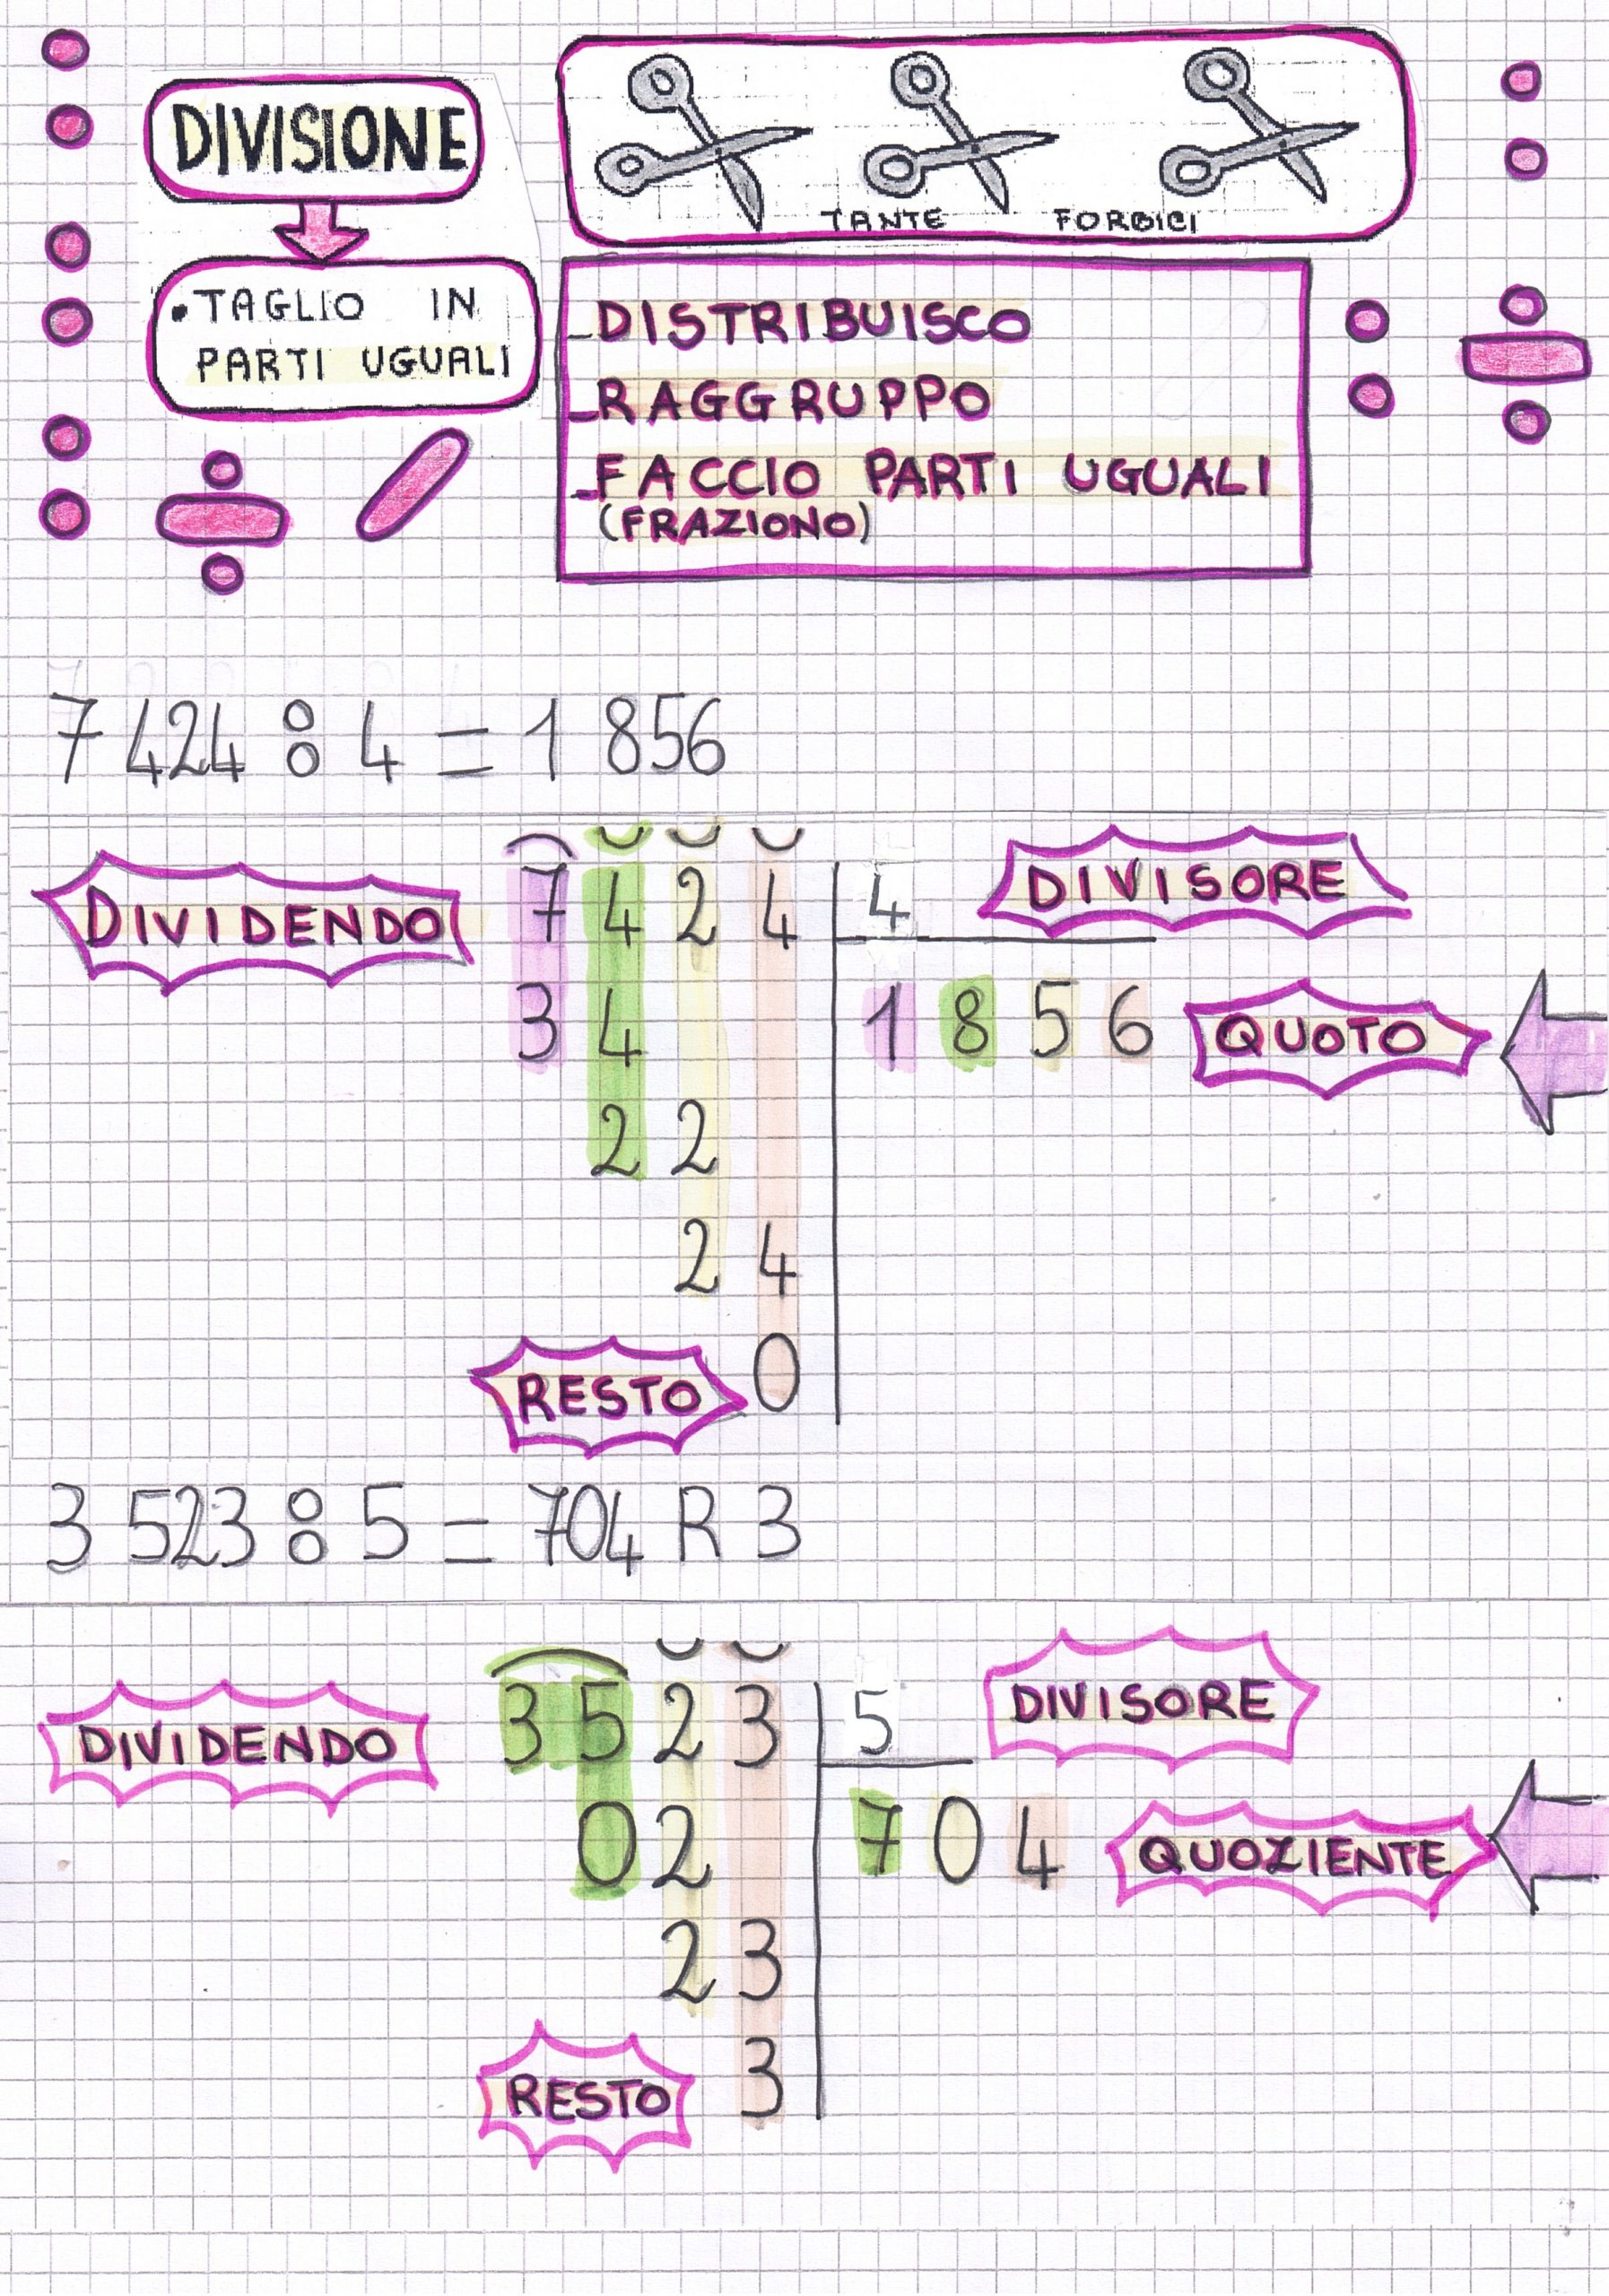 DIVISIONE
• TAGLIO IN
PARTI UGUALI
TANTE FORBICI
- DISTRIBUISCO
- RAGGRUPPO
- FACCIO PARTI UGUALI
(FRAZIONO)
7 424 : 4 = 1 856
DIVIDENDO 7 4 2 4 4 DIVISORE
3 4 1 8 5 6 QUOTO
2 2
2 4
RESTO 0
3 523 : 5 = 704 R 3
DIVIDENDO 3 5 2 3 5 DIVISORE
0 2 7 0 4 QUOZIENTE
2 3
RESTO 3